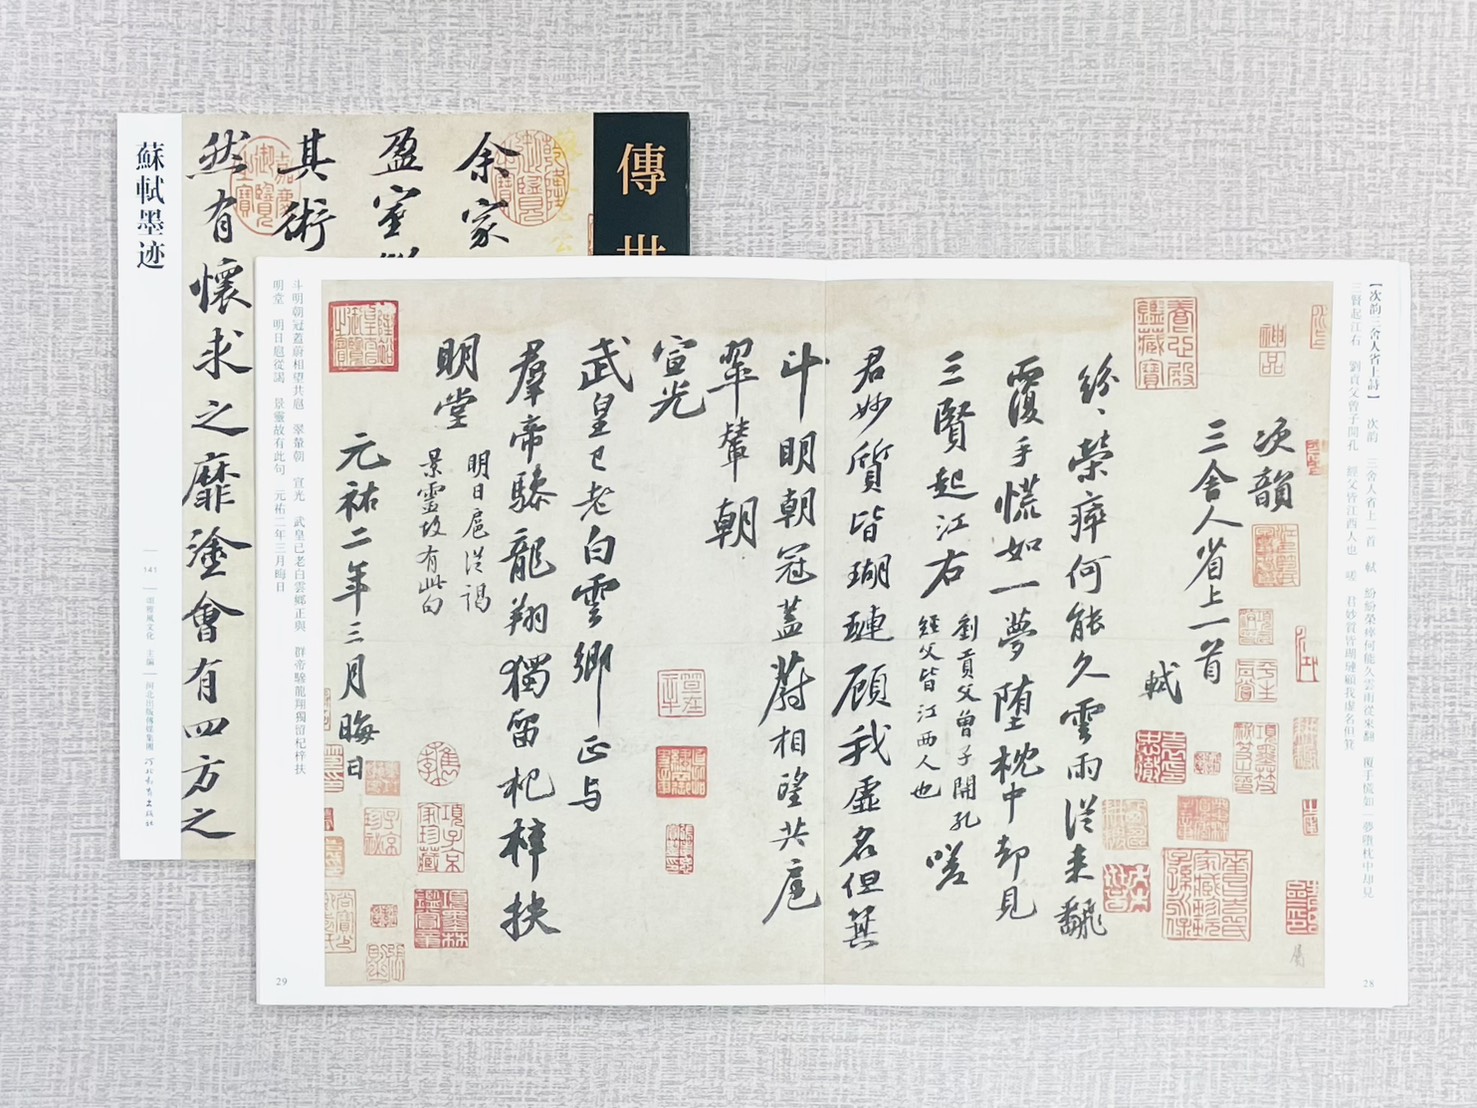 傳世
余家
盈室
其術
然有懷求之靡塗會有四方之
蘇軾墨迹
141
主编
河北出版傳媒集團
河北教育出版社
【次韵三舍人省上詩】 次韵 三舍人省上一首 軾 紛紛榮瘁何能久雲雨從來翻 覆手慌如一夢墮枕中却見
三賢起江右 劉貢父曾子開孔 經父皆江西人也 嗟 君妙質皆瑚璉顧我虛名但箕
28
神品
次韻
三舍人省上一首
軾
紛〻榮瘁何能久雲雨從來翻
覆手慌如一夢墮枕中却見
三賢起江右
劉貢父曾子開孔
經父皆江西人也
嗟
君妙質皆瑚璉顧我虛名但箕
斗明朝冠蓋蔚相望共扈
翠輦朝
宣光
武皇已老白雲鄉正与
羣帝驂龍翔獨留杞梓扶
明堂
明日扈從謁
景靈故有此句
元祐二年三月晦日
斗明朝冠蓋蔚相望共扈 翠輦朝 宣光 武皇已老白雲鄉正與 群帝驂龍翔獨留杞梓扶
明堂 明日扈從謁 景靈故有此句 元祐二年三月晦日
29